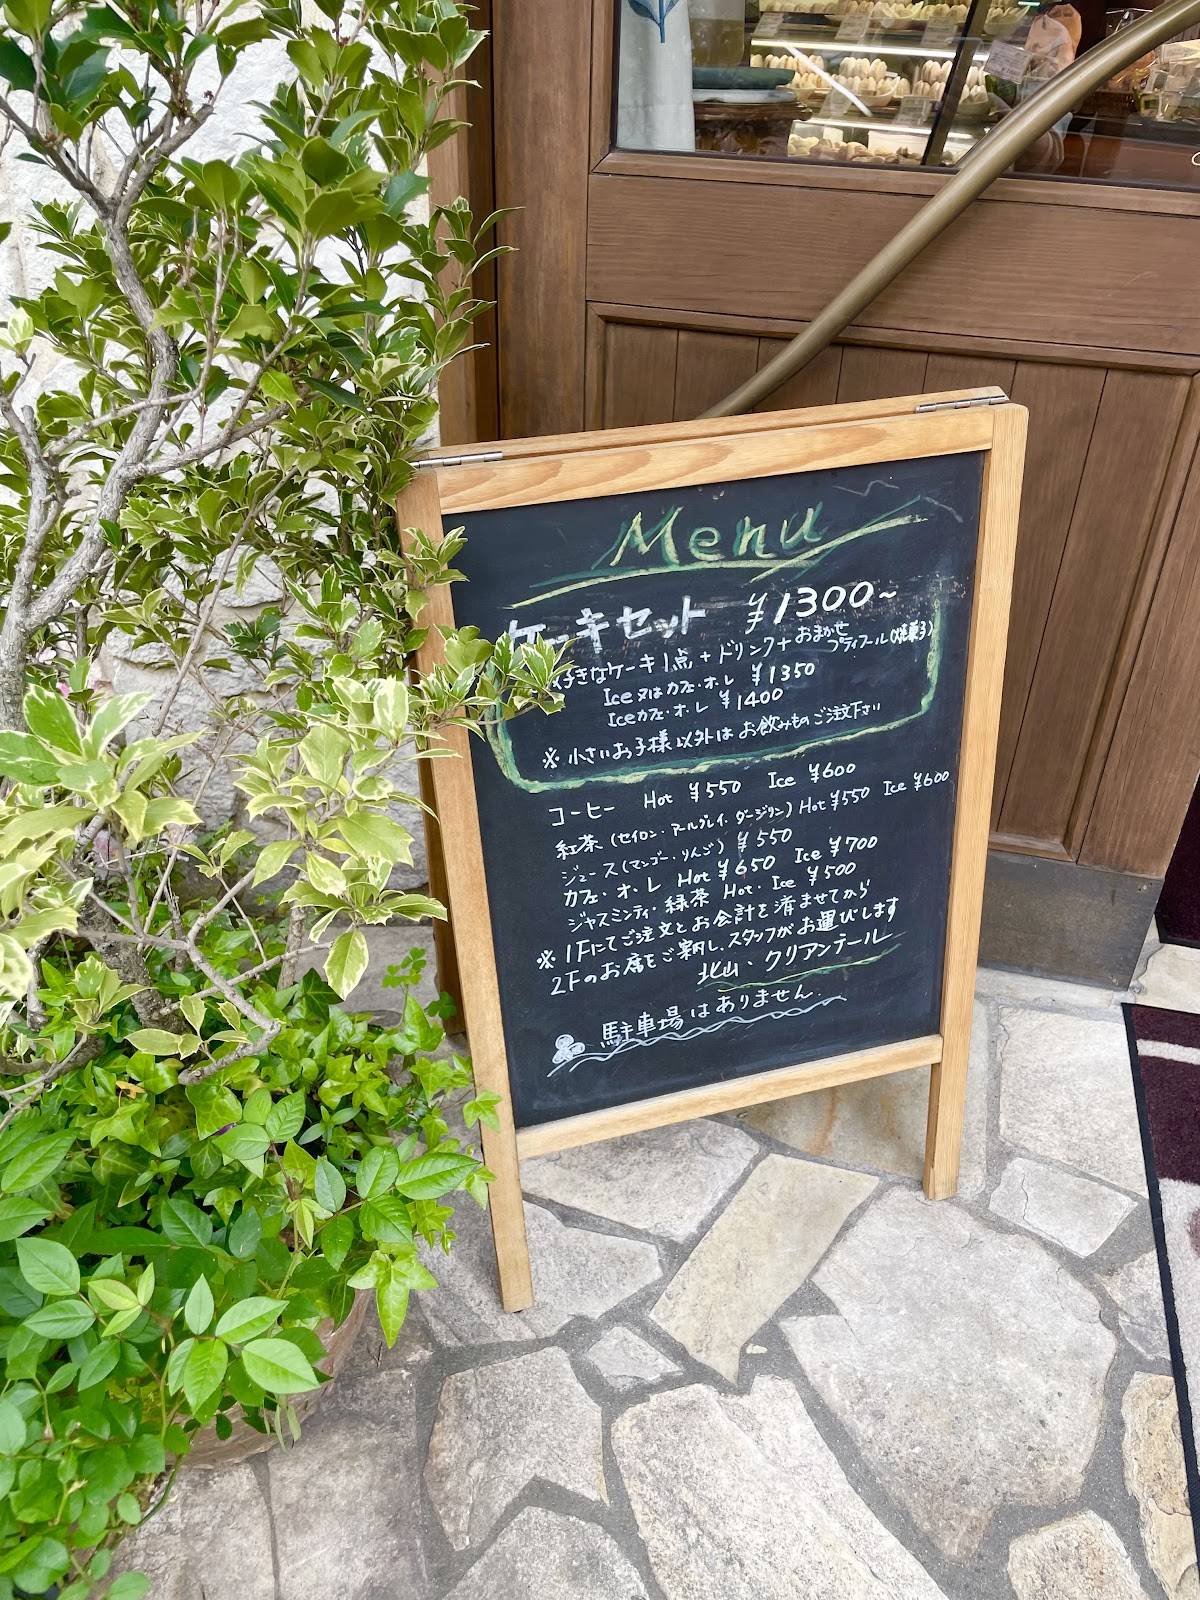 Menu
ケーキセット ¥1300~
好きなケーキ1点+ドリンク+おまかせプティフール(焼菓子)
Ice又はカフェ・オ・レ ¥1350
Iceカフェ・オ・レ ¥1400
※小さいお子様以外はお飲みものご注文下さい
コーヒー Hot ¥550 Ice ¥600
紅茶(セイロン・アールグレイ・ダージリン) Hot ¥550 Ice ¥600
ジュース(マンゴー・りんご) ¥550
カフェ・オ・レ Hot ¥650 Ice ¥700
ジャスミンティ・緑茶 Hot・Ice ¥500
※1Fにてご注文とお会計を済ませてから
2Fのお席をご案内し、スタッフがお運びします
北山・クリアンテール
駐車場はありません